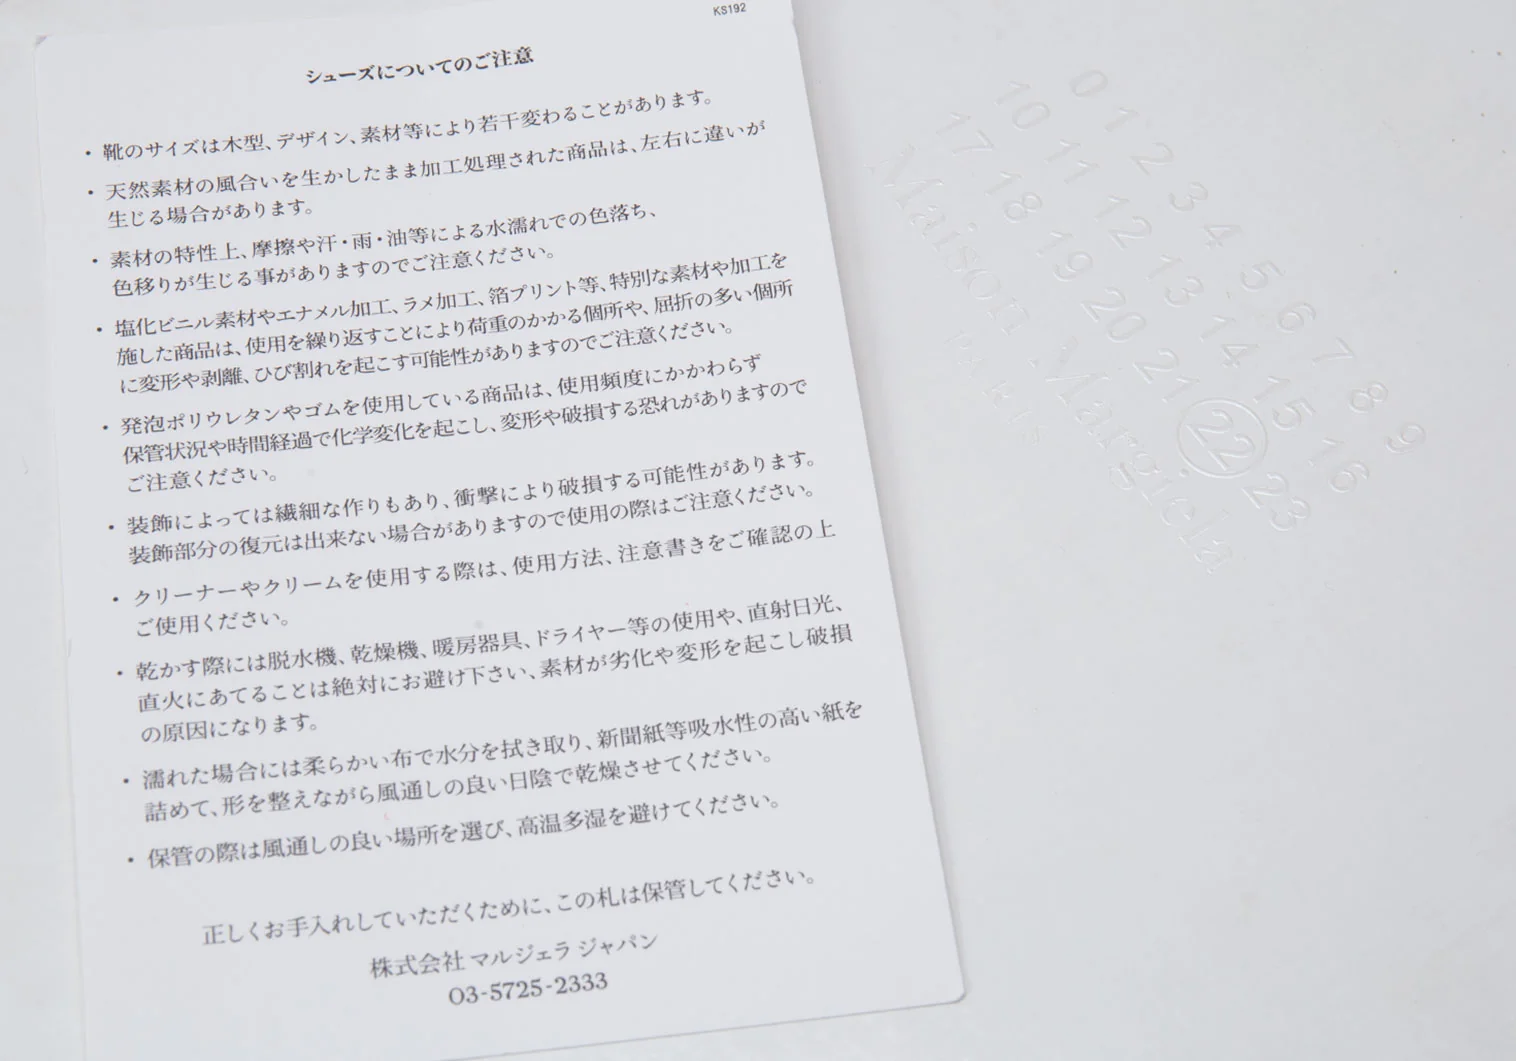 KS192
シューズについてのご注意
・ 靴のサイズは木型、デザイン、素材等により若干変わることがあります。
・ 天然素材の風合いを生かしたまま加工処理された商品は、左右に違いが
生じる場合があります。
・ 素材の特性上、摩擦や汗・雨・油等による水濡れでの色落ち、
色移りが生じる事がありますのでご注意ください。
・ 塩化ビニル素材やエナメル加工、ラメ加工、箔プリント等、特別な素材や加工を
施した商品は、使用を繰り返すことにより荷重のかかる個所や、屈折の多い個所
に変形や剥離、ひび割れを起こす可能性がありますのでご注意ください。
・ 発泡ポリウレタンやゴムを使用している商品は、使用頻度にかかわらず
保管状況や時間経過で化学変化を起こし、変形や破損する恐れがありますので
ご注意ください。
・ 装飾によっては繊細な作りもあり、衝撃により破損する可能性があります。
装飾部分の復元は出来ない場合がありますので使用の際はご注意ください。
・ クリーナーやクリームを使用する際は、使用方法、注意書きをご確認の上
ご使用ください。
・ 乾かす際には脱水機、乾燥機、暖房器具、ドライヤー等の使用や、直射日光、
直火にあてることは絶対にお避け下さい、素材が劣化や変形を起こし破損
の原因になります。
・ 濡れた場合には柔らかい布で水分を拭き取り、新聞紙等吸水性の高い紙を
詰めて、形を整えながら風通しの良い日陰で乾燥させてください。
・ 保管の際は風通しの良い場所を選び、高温多湿を避けてください。
正しくお手入れしていただくために、この札は保管してください。
株式会社 マルジェラ ジャパン
03-5725-2333
0 1 2 3 4 5 6 7 8 9
10 11 12 13 14 15 16
17 18 19 20 21 22 23
Maison Margiela
PARIS